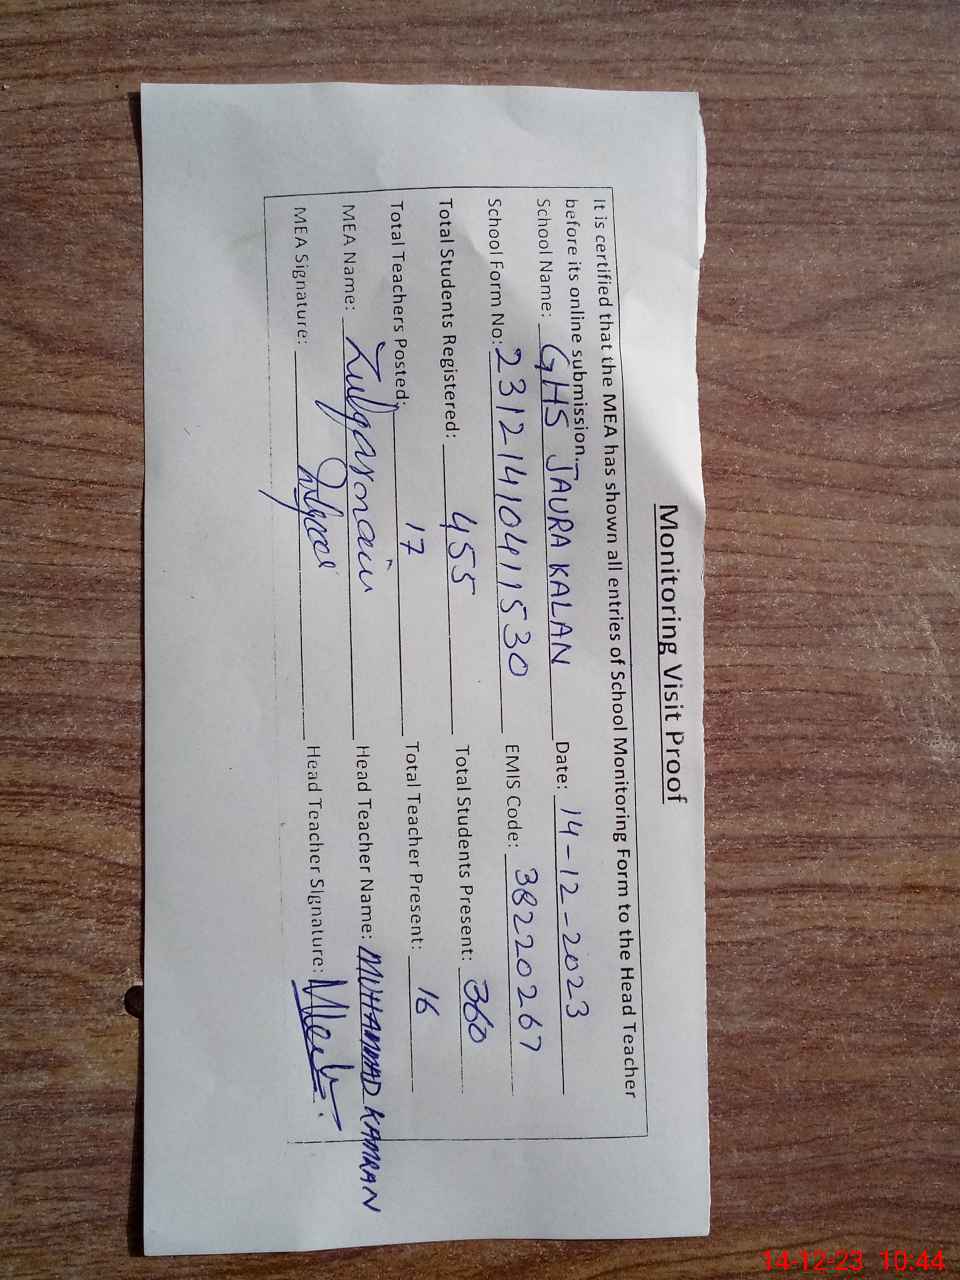 Monitoring Visit Proof
It is certified that the MEA has shown all entries of School Monitoring Form to the Head Teacher
before its online submission.
School Name: GHS JAURA KALAN Date: 14-12-2023
School Form No: 23121410411530 EMIS Code: 38220267
Total Students Registered: 455 Total Students Present: 360
Total Teachers Posted: 17 Total Teacher Present: 16
MEA Name: Zulqarnain Head Teacher Name: MUHAMMAD KAMRAN
MEA Signature: Head Teacher Signature:
14-12-23 10:44